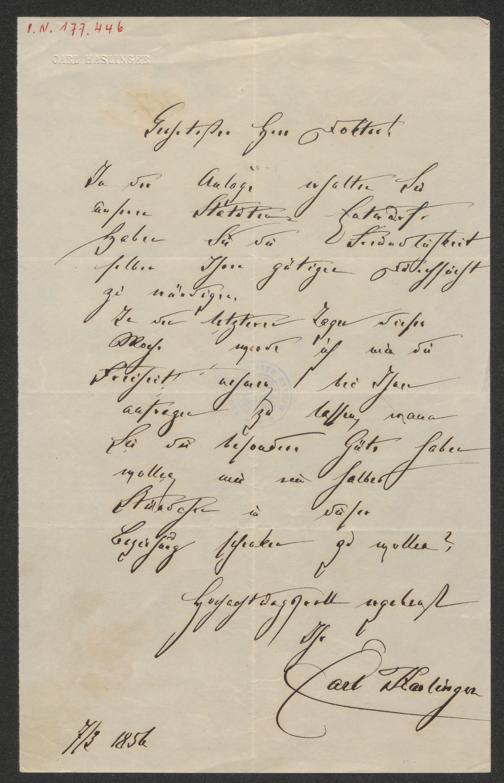 I.N. 177.446
CARL HASLINGER
Geehrtester Herr Doktor!
In der Anlage erhalten Sie
unseren Statuten Entwurf.
Haben Sie die Freundlichkeit
selben Ihrer gütigen Durchsicht
zu würdigen.
In den letzteren Tagen dieser
Woche werde ich mir die
Freiheit nehmen, bei Ihnen
anfragen zu lassen, wann
Sie die besondere Güte haben
wollen, mir ein halbes
Stündchen in dieser
Beziehung schenken zu wollen?
Hochachtungsvoll ergebenst
Ihr
Carl Haslinger
7/3 1856